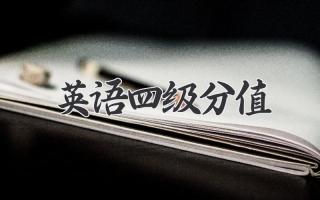 英语四级分值